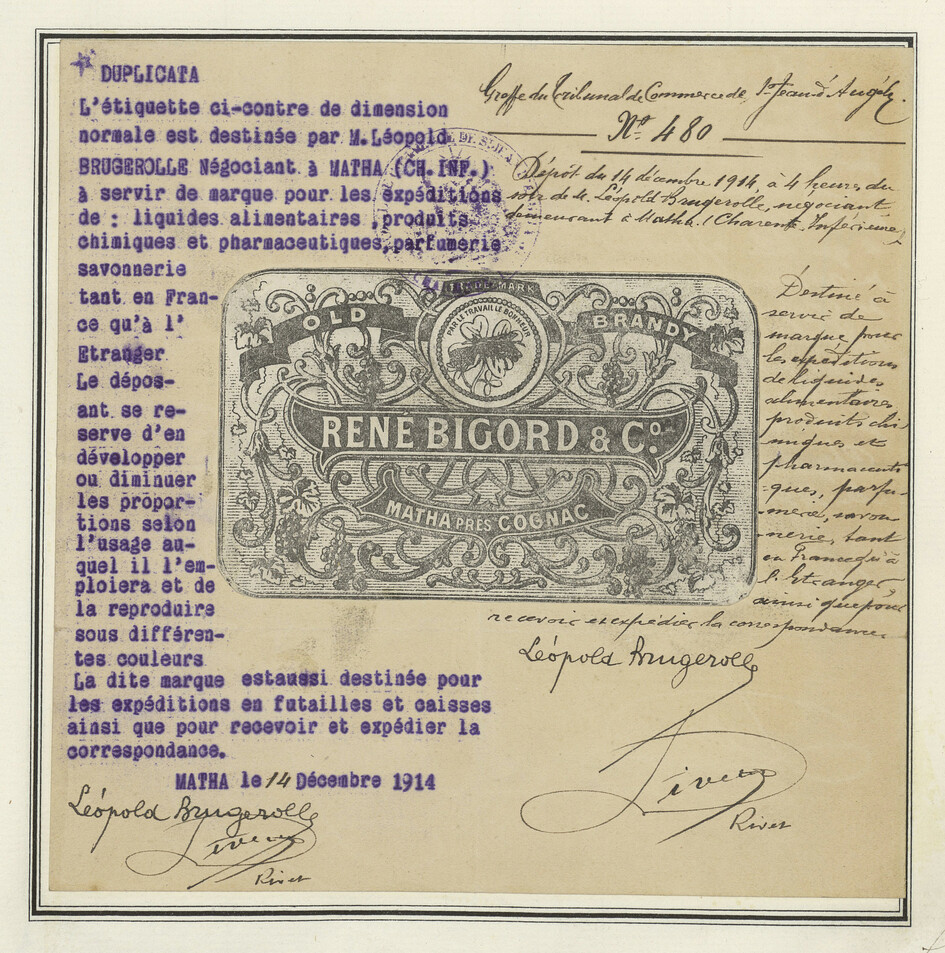 DUPLICATA
L'étiquette ci-contre de dimension
normale est destinée par M.Léopold
BRUGEROLLE Négociant à MATHA (CH.INF.)
à servir de marque pour les expéditions
de : liquides alimentaires, produits
chimiques et pharmaceutiques, parfumerie
savonnerie
tant en Fran-
ce qu'à l'
Etranger
Le dépos-
ant se re-
serve d'en
développer
ou diminuer
les propor-
tions selon
l'usage au-
quel il l'em-
ploiera et de
la reproduire
sous différen-
tes couleurs
La dite marque estaussi destinée pour
les expéditions en futailles et caisses
ainsi que pour recevoir et expédier la
correspondance.
MATHA le 14 Décembre 1914
Léopold Brugerolle
Rivet
Greffe du Tribunal de Commerce de St Jean d'Angély.
No 480
Dépôt du 14 décembre 1914, à 4 heures du
soir de M. Léopold Brugerolle, négociant
demeurant à Matha (Charente Inférieure)
TRADE MARK
PAR LE TRAVAIL LE BONHEUR
OLD BRANDY
RENÉ BIGORD & Co.
MATHA PRÈS COGNAC
Destiné à
servir de
marque pour
les expéditions
de liquides
alimentaires
produits chi
miques et
pharmaceuti
-ques, parfu-
merie, savon
nerie, tant
en France qu'à
l'Etranger
ainsi que pour
recevoir et expédier la correspondance.
Léopold Brugerolle
Rivet